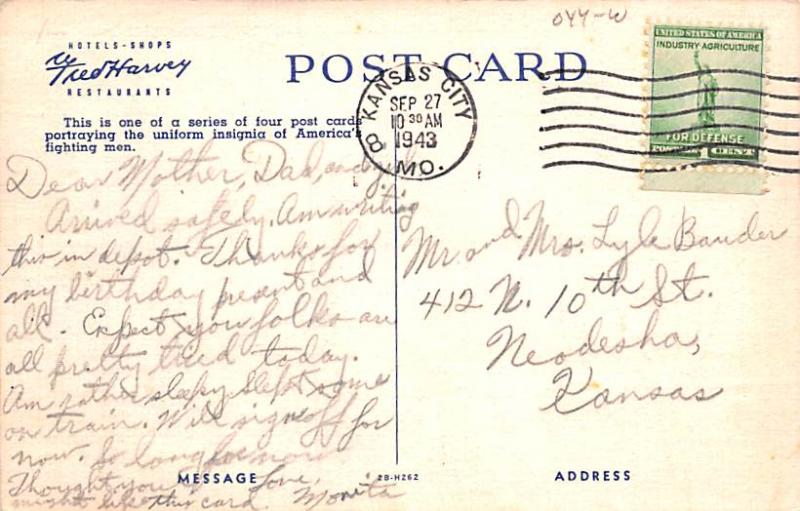 044-W
HOTELS-SHOPS
Fred Harvey
RESTAURANTS
POST CARD
This is one of a series of four post cards
portraying the uniform insignia of America's
fighting men.
KANSAS CITY
SEP 27
10 30 AM
1943
8
MO.
UNITED STATES OF AMERICA
INDUSTRY AGRICULTURE
FOR DEFENSE
POSTAGE 1 CENT
Dear Mother, Dad, and
Arrived safely. Am writing
this in depot. Thanks for
my birthday present and
all. Expect you folks are
all pretty tired today.
Am rather sleepy. Slept some
on train. Will sign off for
now. So long for now
Love,
Monita
Thought you
might like this card.
Mr. and Mrs. Lyle Bauder
412 N. 10th St.
Neodesha,
Kansas
MESSAGE
2B-H262
ADDRESS